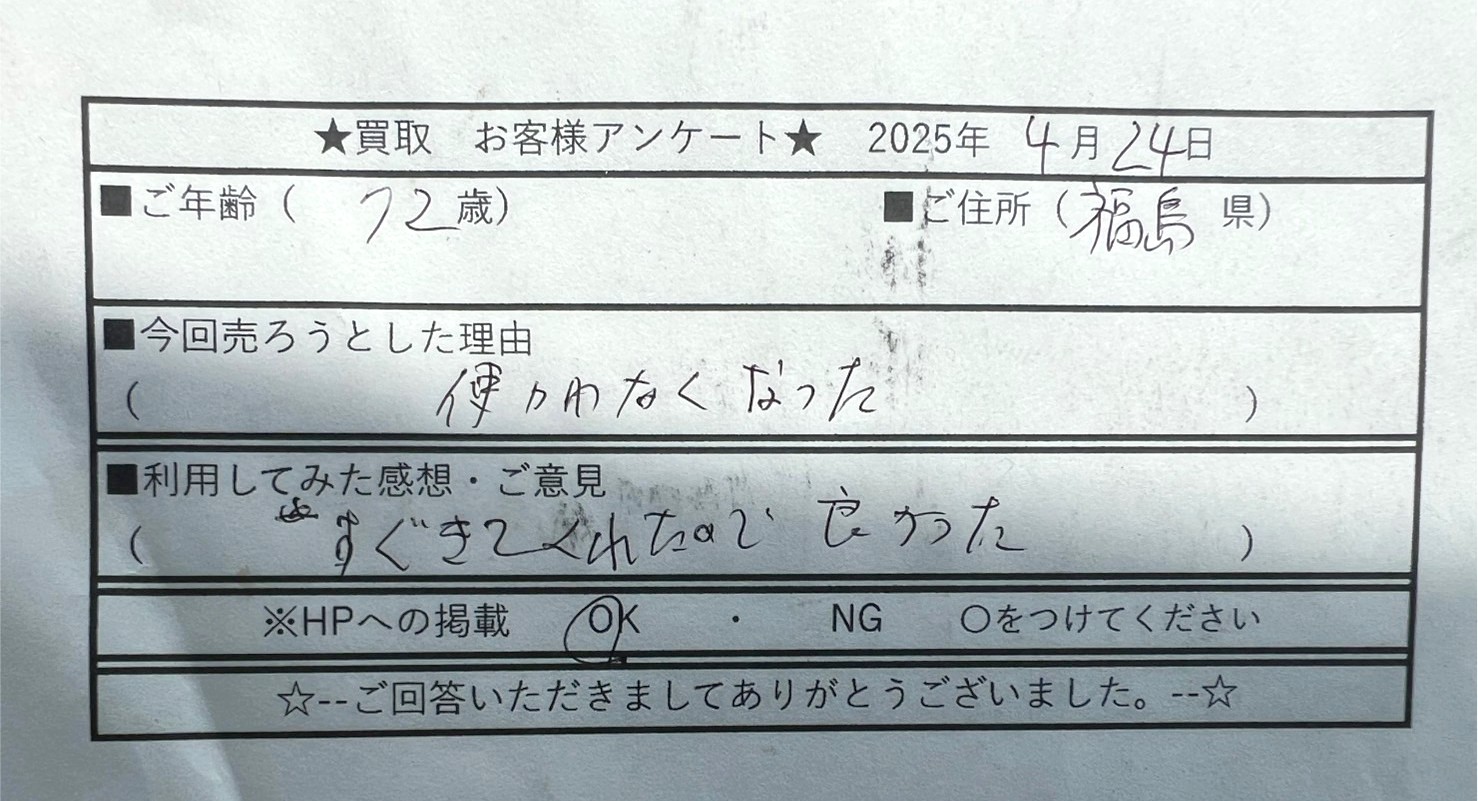 ★買取 お客様アンケート★ 2025年 4月24日
■ご年齢( 72歳) ■ご住所(福島 県)
■今回売ろうとした理由
( 使かわなくなった )
■利用してみた感想・ご意見
( すぐきてくれたので 良かった )
※HPへの掲載 OK ・ NG 〇をつけてください
☆--ご回答いただきましてありがとうございました。--☆